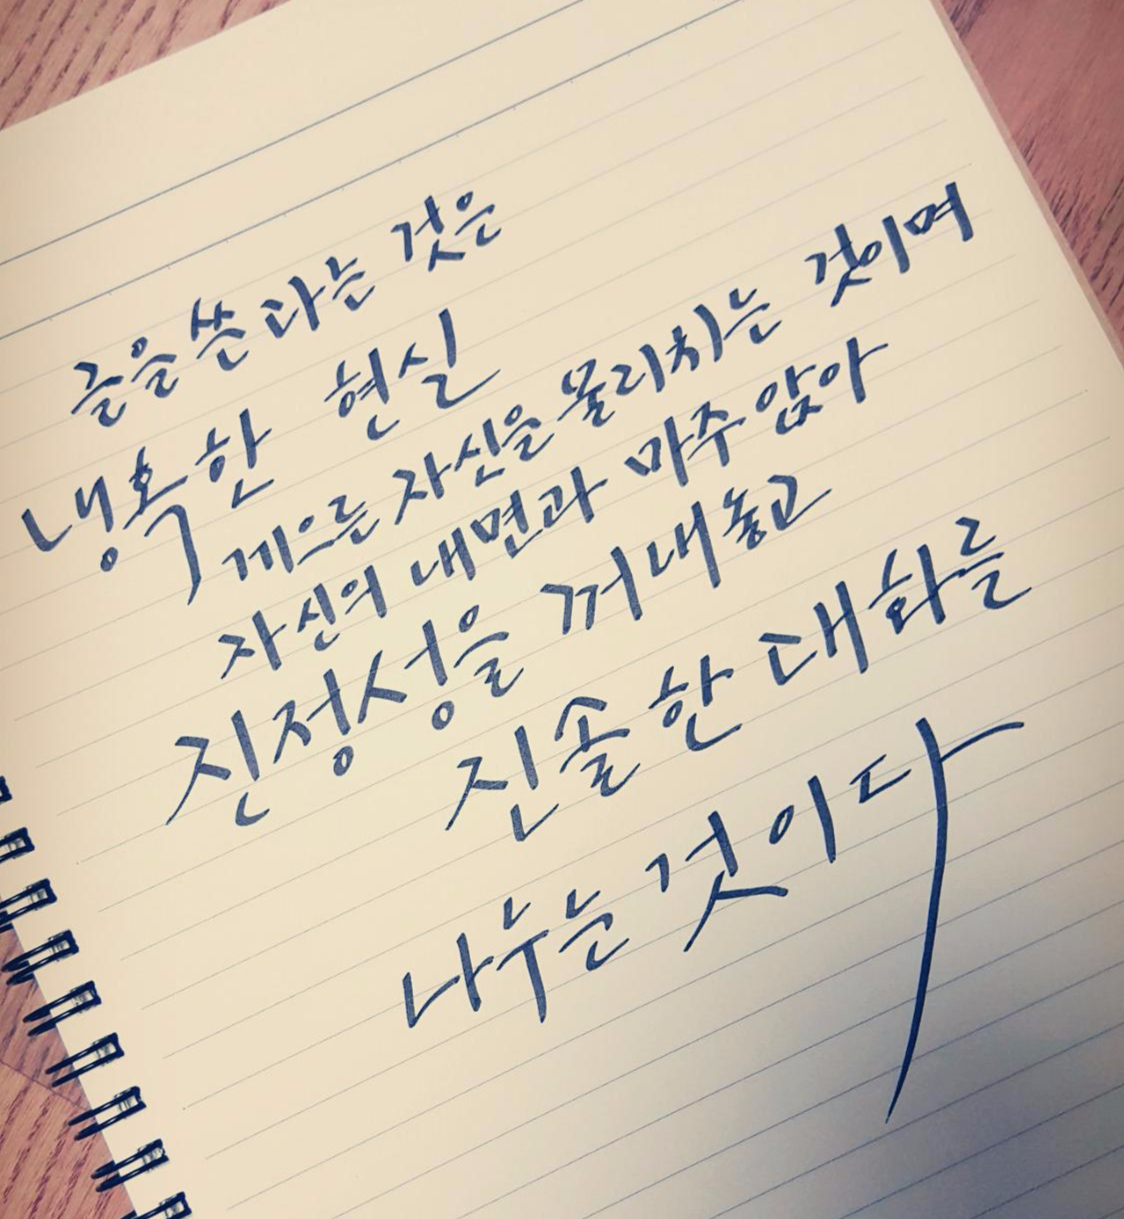 글을 쓴다는 것은
냉혹한 현실
게으른 자신을 물리치는 것이며
자신의 내면과 마주 앉아
진정성을 꺼내놓고
진솔한 대화를
나누는 것이다